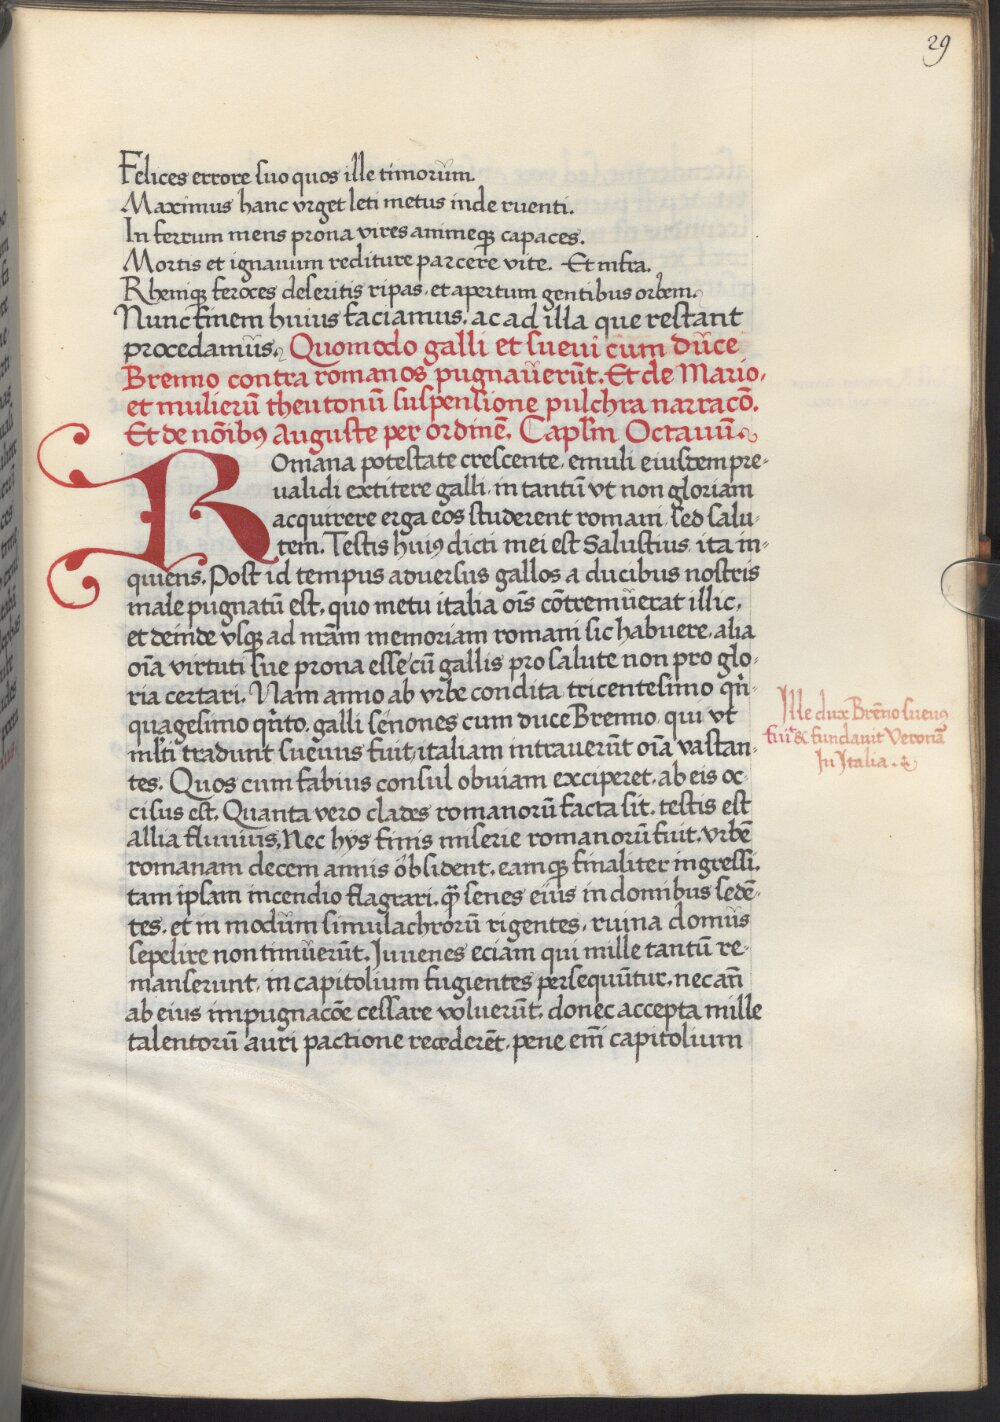 29
Felices errore suo quos ille timorũm.
Maximus hanc vrget leti metus inde ruenti.
In ferrum mens prona vires animeqꝫ capaces.
Mortis et ignauum rediture parcere vite. Et infra.
Rhemiqꝫ feroces deseritis ripas, et apertum gentibus orbem.
Nunc finem huius faciamus, ac ad illa que restant
procedamus. Quomodo galli et sueui cum duce
Brenno contra romanos pugnauerũt. Et de Mario,
et mulierũ theutonũ suspensione pulchra narracõ.
Et de nõibꝰ Auguste per ordinẽ. Caplm̃ Octauũ.
Romana potestate crescente, emuli eiusdem pre-
ualidi extitere galli, in tantũ vt non gloriam
acquirere erga eos studerent romani, sed salu-
tem. Testis huiꝰ dicti mei est Salustius, ita in-
quiens. Post id tempus aduersus gallos a ducibus nostris
male pugnatũ est, quo metu italia oĩs cõtremuerat illic,
et deinde vsqꝫ ad nrãm memoriam romani sic habuere, alia
oĩa virtuti sue prona esse, cũ gallis pro salute non pro glo-
ria certari. Nam anno ab vrbe condita tricentesimo qñ-
quagesimo qñto, galli senones cum duce Brenno, qui vt
ml̃ti tradunt sueuus fuit, italiam intrauerũt oĩa vastan-
tes. Quos cum fabius consul obuiam exciperet, ab eis oc-
cisus est. Quanta vero clades romanorũ facta sit, testis est
allia fluuius. Nec hys finis miserie romanorũ fuit, vrbẽ
romanam decem annis obsident, eamqꝫ finaliter ingressi,
tam ipsam incendio flagrari, qꝫ senes eius in domibus sedẽ-
tes, et in modum simulachrorũ rigentes, ruina domus
sepelire non timuerũt. Iuuenes eciam qui mille tantũ re-
manserunt, in capitolium fugientes persequũtur, nec añ
ab eius impugnacõe cessare voluerũt, donec accepta mille
talentorũ auri pactione recederẽt, pene em̃ capitolium
Ille dux Brẽno sueuꝰ
fuit & fundauit Veronã
In Italia.